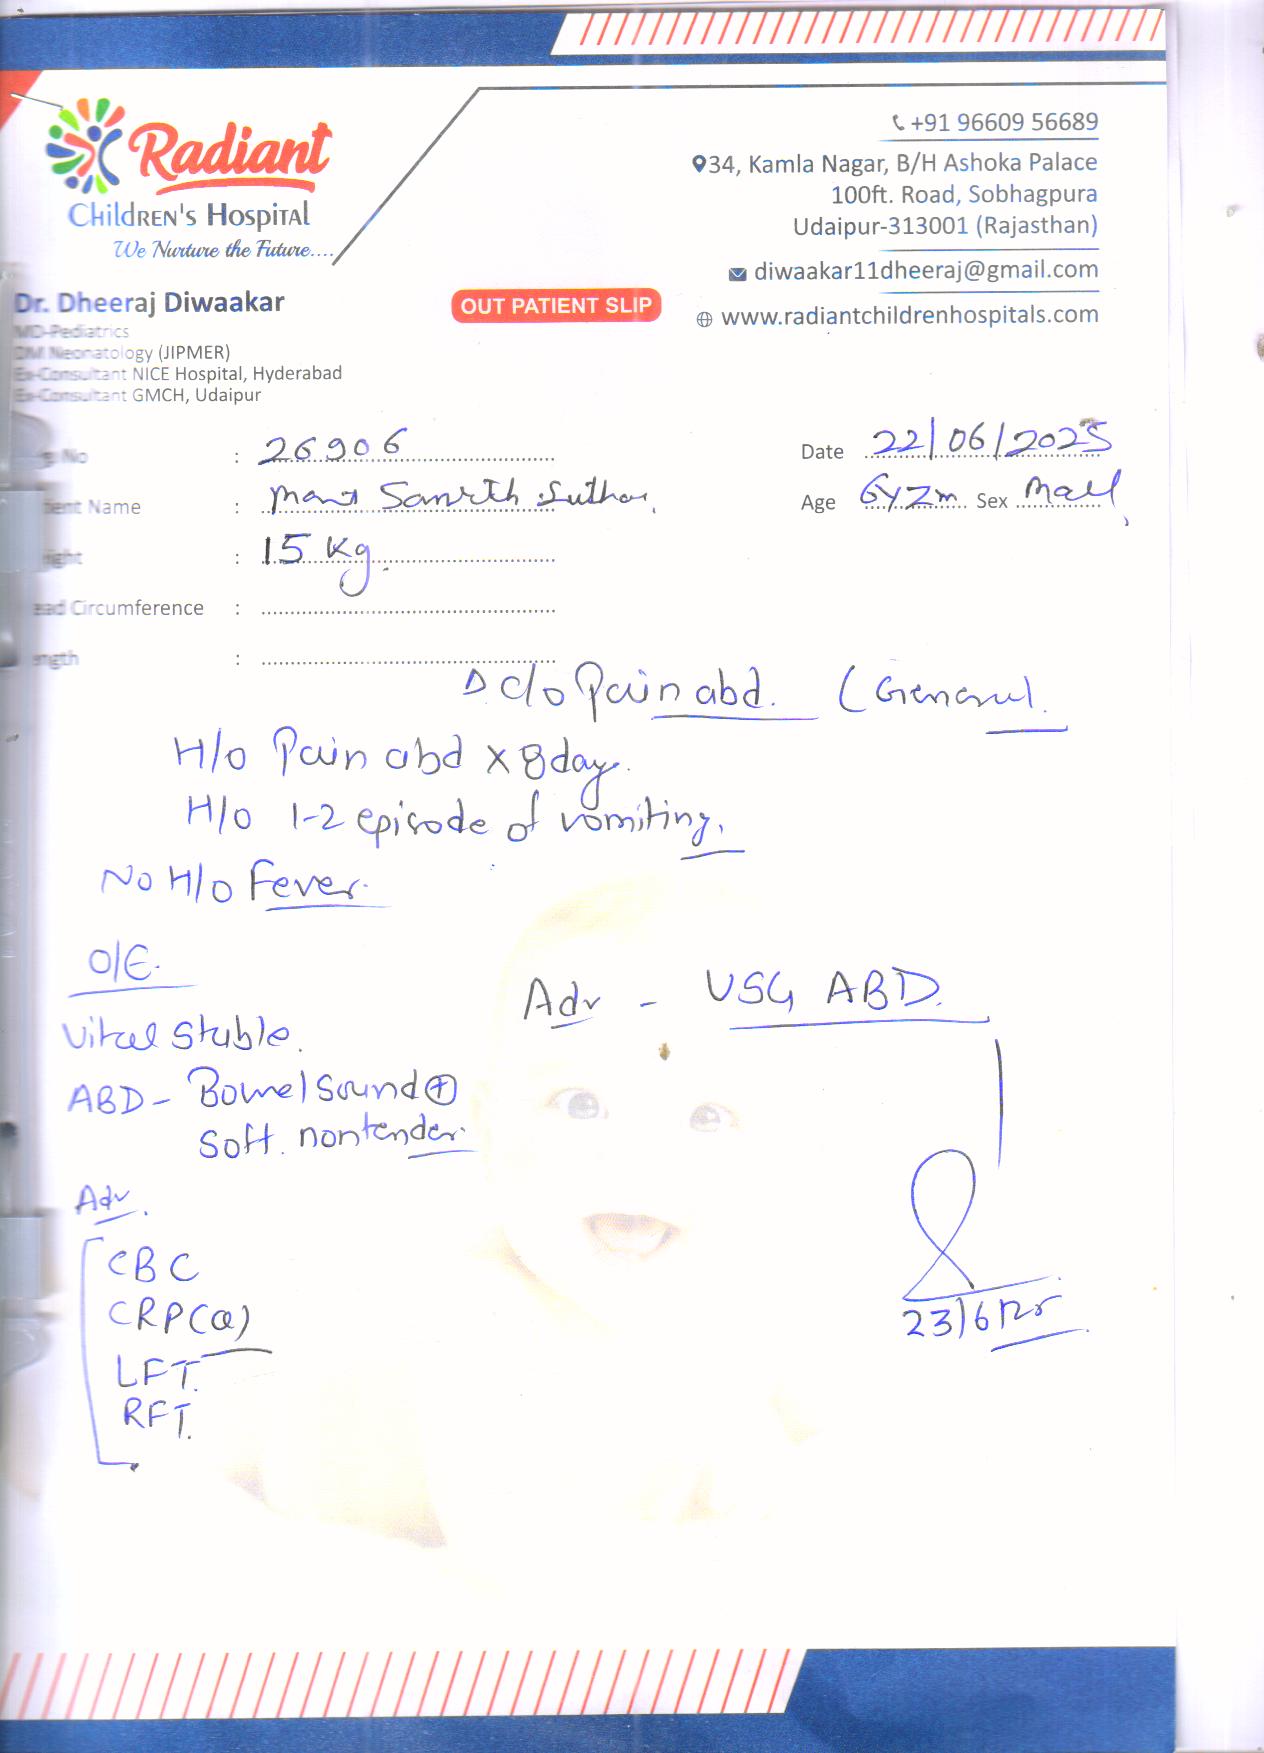 Radiant
Children's Hospital
We Nurture the Future....
+91 96609 56689
34, Kamla Nagar, B/H Ashoka Palace
100ft. Road, Sobhagpura
Udaipur-313001 (Rajasthan)
diwaakar11dheeraj@gmail.com
www.radiantchildrenhospitals.com
Dr. Dheeraj Diwaakar
MD-Pediatrics
DM Neonatology (JIPMER)
Ex-Consultant NICE Hospital, Hyderabad
Ex-Consultant GMCH, Udaipur
OUT PATIENT SLIP
No : 26906
Date 22/06/2025
Name : Suthar
Age 6y2m Sex Male
: 15 Kg.
Head Circumference :
Length :
c/o Pain abd. (General.
H/o Pain abd x 8day.
H/o 1-2 episode of vomiting.
No H/o Fever.
O/E.
Vital Stable.
ABD - Bowel Sound ⊕
Soft. nontender.
Adv - USG ABD.
Adv.
CBC
CRP(Q)
LFT.
RFT.
23/6